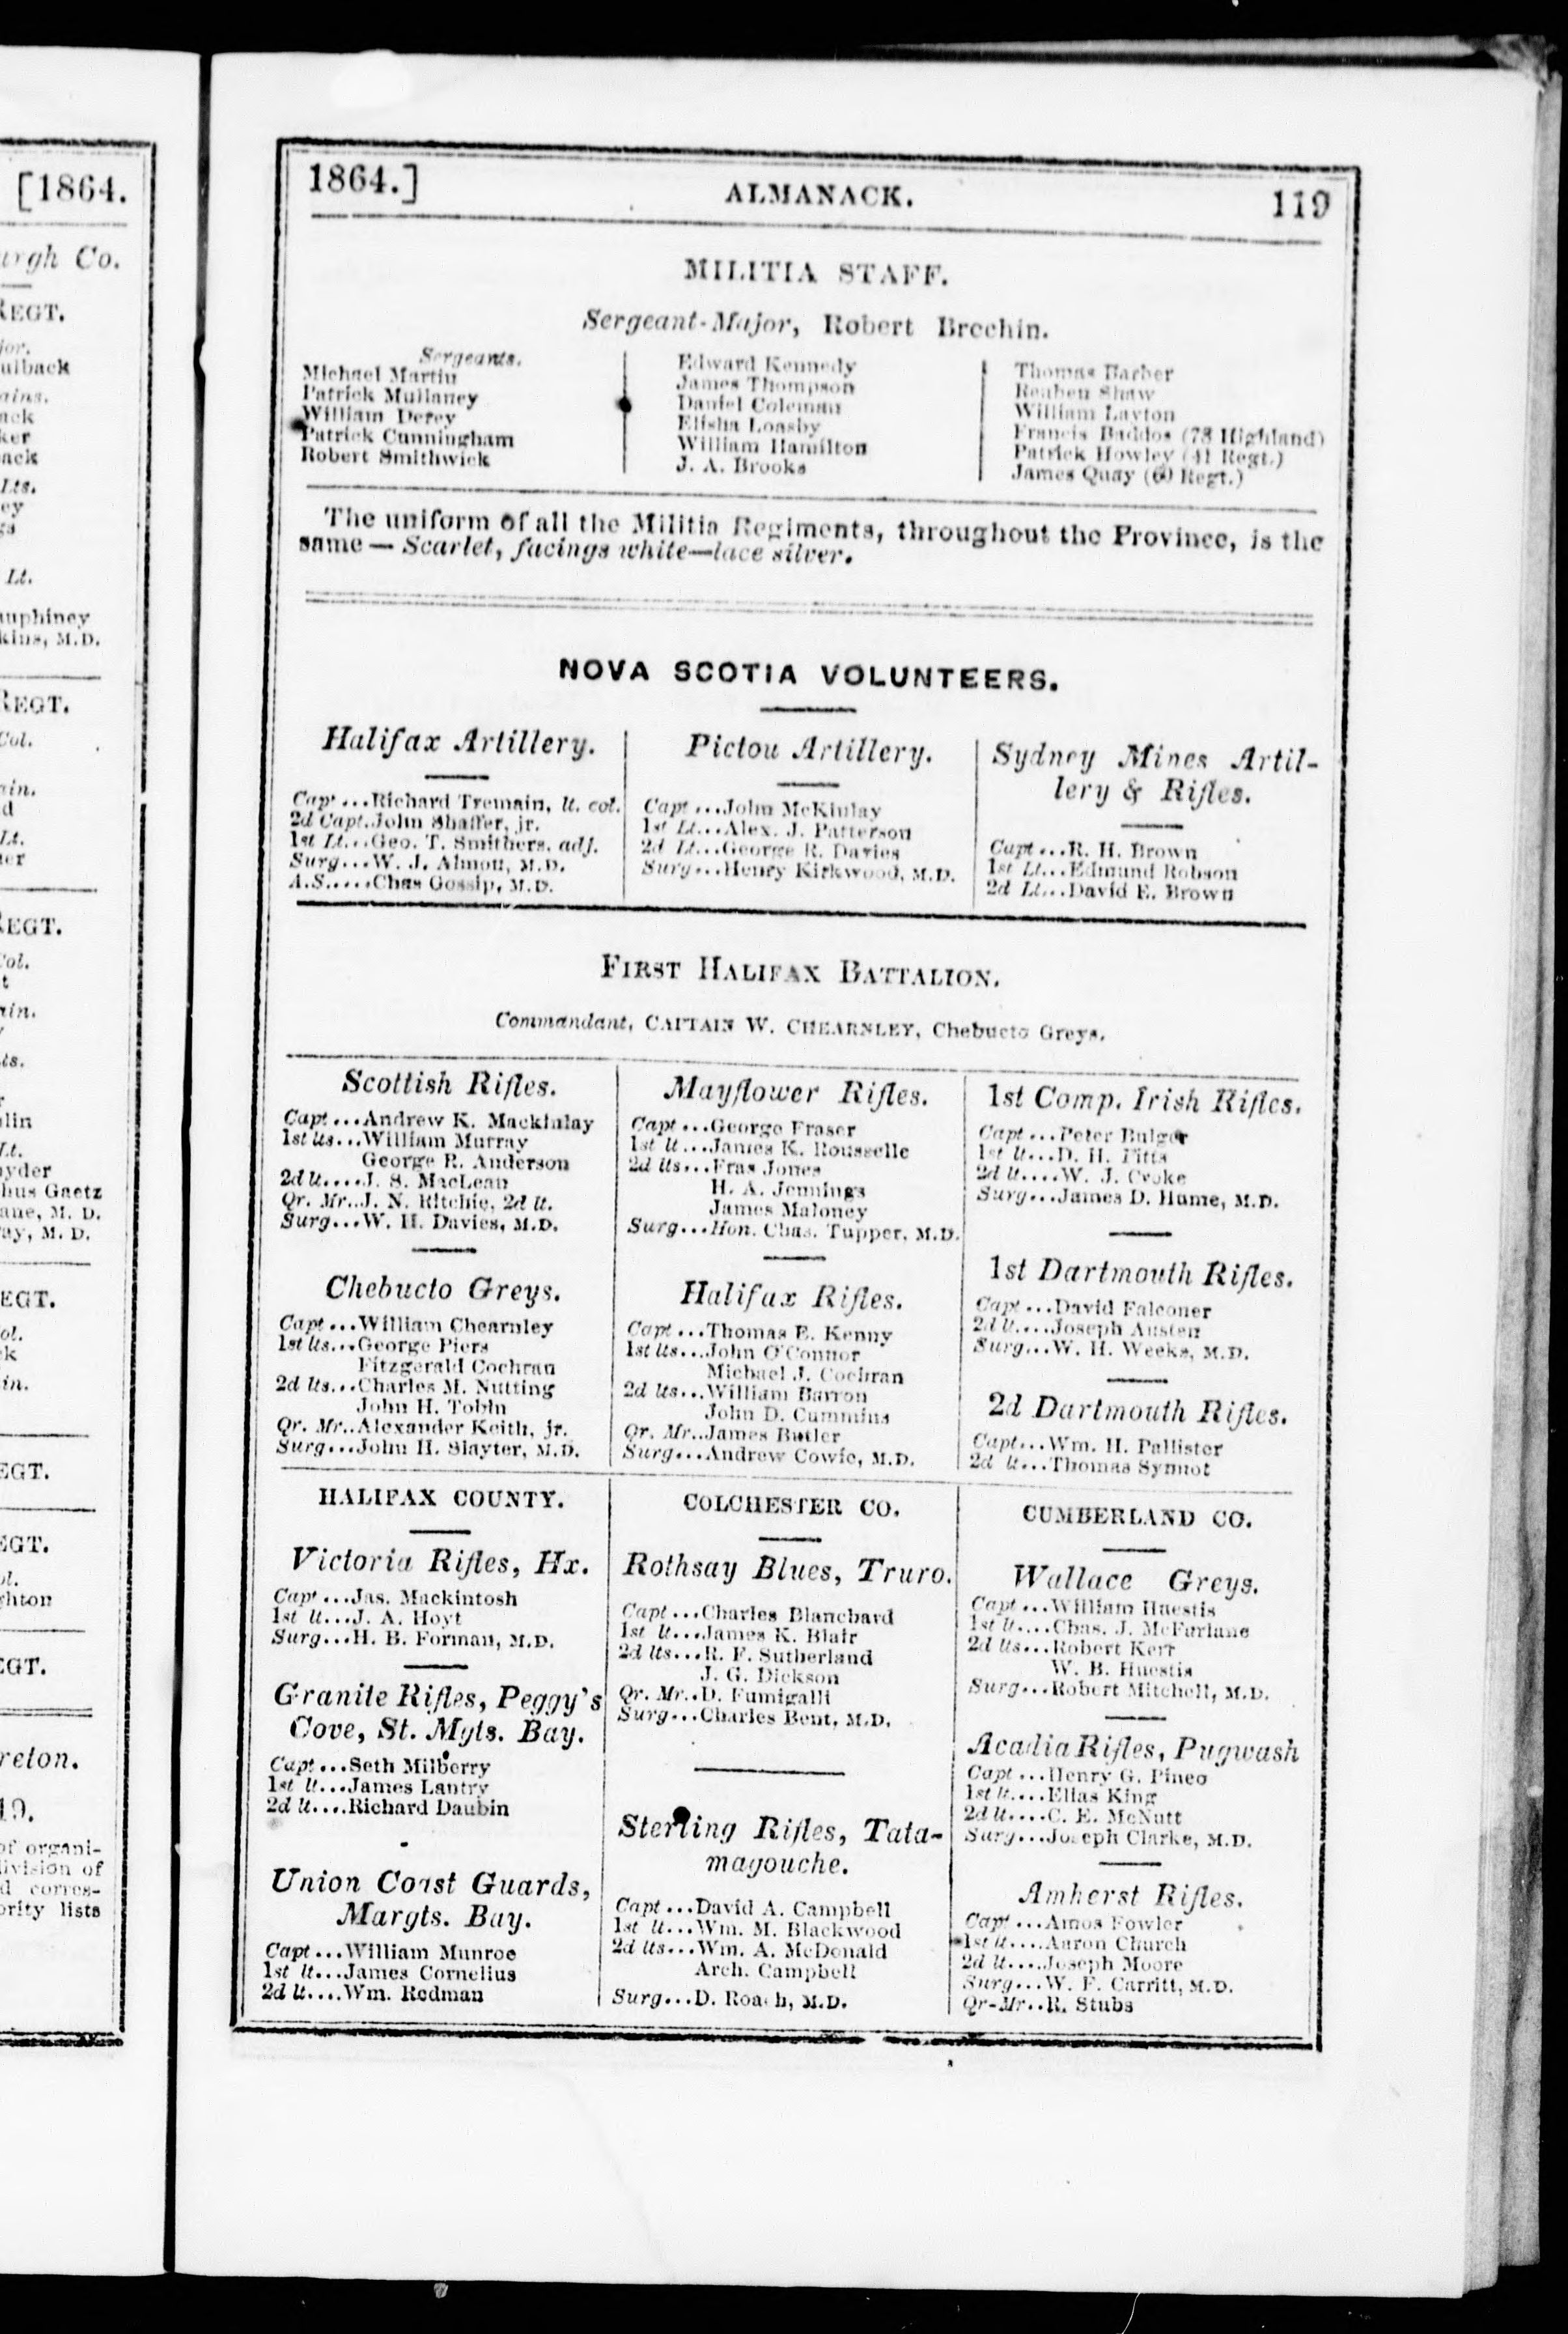 [1864.
urgh Co.
REGT.
ulback
ack
ker
ack
Lts.
ey
Lt.
auphiney
kins, M.D.
REGT.
Col.
ain.
d
Lt.
er
REGT.
Col.
t
ain.
ts.
lin
Lt.
nyder
hus Gaetz
ane, M. D.
ay, M. D.
EGT.
ol.
k
in.
EGT.
EGT.
ol.
ghton
EGT.
reton.
19.
of organi-
division of
d corres-
ority lists
1864.] ALMANACK. 119
MILITIA STAFF.
Sergeant-Major, Robert Brechin.
Sergeants.
Michael Martin
Patrick Mullaney
William Derey
Patrick Cunningham
Robert Smithwick
Edward Kennedy
James Thompson
Daniel Coleman
Elisha Loasby
William Hamilton
J. A. Brooks
Thomas Barber
Reuben Shaw
William Layton
Francis Baddos (78 Highland)
Patrick Howley (41 Regt.)
James Quay (60 Regt.)
The uniform of all the Militia Regiments, throughout the Province, is the
same — Scarlet, facings white—lace silver.
NOVA SCOTIA VOLUNTEERS.
Halifax Artillery.
Capt...Richard Tremain, lt. col.
2d Capt.John Shaffer, jr.
1st Lt...Geo. T. Smithers. adj.
Surg...W. J. Almon, M.D.
A.S.....Chas Gossip, M.D.
Pictou Artillery.
Capt...John McKinlay
1st Lt...Alex. J. Patterson
2d Lt...George R. Davies
Surg...Henry Kirkwood, M.D.
Sydney Mines Artil-
lery & Rifles.
Capt...R. H. Brown
1st Lt...Edmund Robson
2d Lt...David E. Brown
FIRST HALIFAX BATTALION.
Commandant, CAPTAIN W. CHEARNLEY, Chebucto Greys.
Scottish Rifles.
Capt...Andrew K. Mackinlay
1st lts...William Murray
George R. Anderson
2d lt....J. S. MacLean
Qr. Mr..J. N. Ritchie, 2d lt.
Surg...W. H. Davies, M.D.
Chebucto Greys.
Capt...William Chearnley
1st lts...George Piers
Fitzgerald Cochran
2d lts...Charles M. Nutting
John H. Tobin
Qr. Mr..Alexander Keith, jr.
Surg...John H. Slayter, M.D.
Mayflower Rifles.
Capt...George Fraser
1st lt...James K. Rousselle
2d lts...Fras Jones
H. A. Jennings
James Maloney
Surg...Hon. Chas. Tupper, M.D.
Halifax Rifles.
Capt...Thomas E. Kenny
1st lts...John O'Connor
Michael J. Cochran
2d lts...William Barron
John D. Cummins
Qr. Mr..James Butler
Surg...Andrew Cowie, M.D.
1st Comp. Irish Rifles.
Capt...Peter Bulger
1st lt...D. H. Pitts
2d lt....W. J. Cooke
Surg...James D. Hume, M.D.
1st Dartmouth Rifles.
Capt...David Falconer
2d lt....Joseph Austen
Surg...W. H. Weeks, M.D.
2d Dartmouth Rifles.
Capt...Wm. H. Pallister
2d lt...Thomas Synnot
HALIFAX COUNTY.
Victoria Rifles, Hx.
Capt...Jas. Mackintosh
1st lt...J. A. Hoyt
Surg...H. B. Forman, M.D.
Granite Rifles, Peggy's
Cove, St. Mgts. Bay.
Capt...Seth Milberry
1st lt...James Lantry
2d lt....Richard Daubin
Union Coast Guards,
Margts. Bay.
Capt...William Munroe
1st lt...James Cornelius
2d lt....Wm. Redman
COLCHESTER CO.
Rothsay Blues, Truro.
Capt...Charles Blanchard
1st lt...James K. Blair
2d lts...R. F. Sutherland
J. G. Dickson
Qr. Mr..D. Fumigalli
Surg...Charles Bent, M.D.
Sterling Rifles, Tata-
magouche.
Capt...David A. Campbell
1st lt...Wm. M. Blackwood
2d lts...Wm. A. McDonald
Arch. Campbell
Surg...D. Roach, M.D.
CUMBERLAND CO.
Wallace Greys.
Capt...William Huestis
1st lt....Chas. J. McFarlane
2d lts...Robert Kerr
W. B. Huestis
Surg...Robert Mitchell, M.D.
Acadia Rifles, Pugwash
Capt...Henry G. Pineo
1st lt....Elias King
2d lt....C. E. McNutt
Surg...Joseph Clarke, M.D.
Amherst Rifles.
Capt...Amos Fowler
1st lt....Aaron Church
2d lt....Joseph Moore
Surg...W. F. Carritt, M.D.
Qr-Mr..R. Stubs